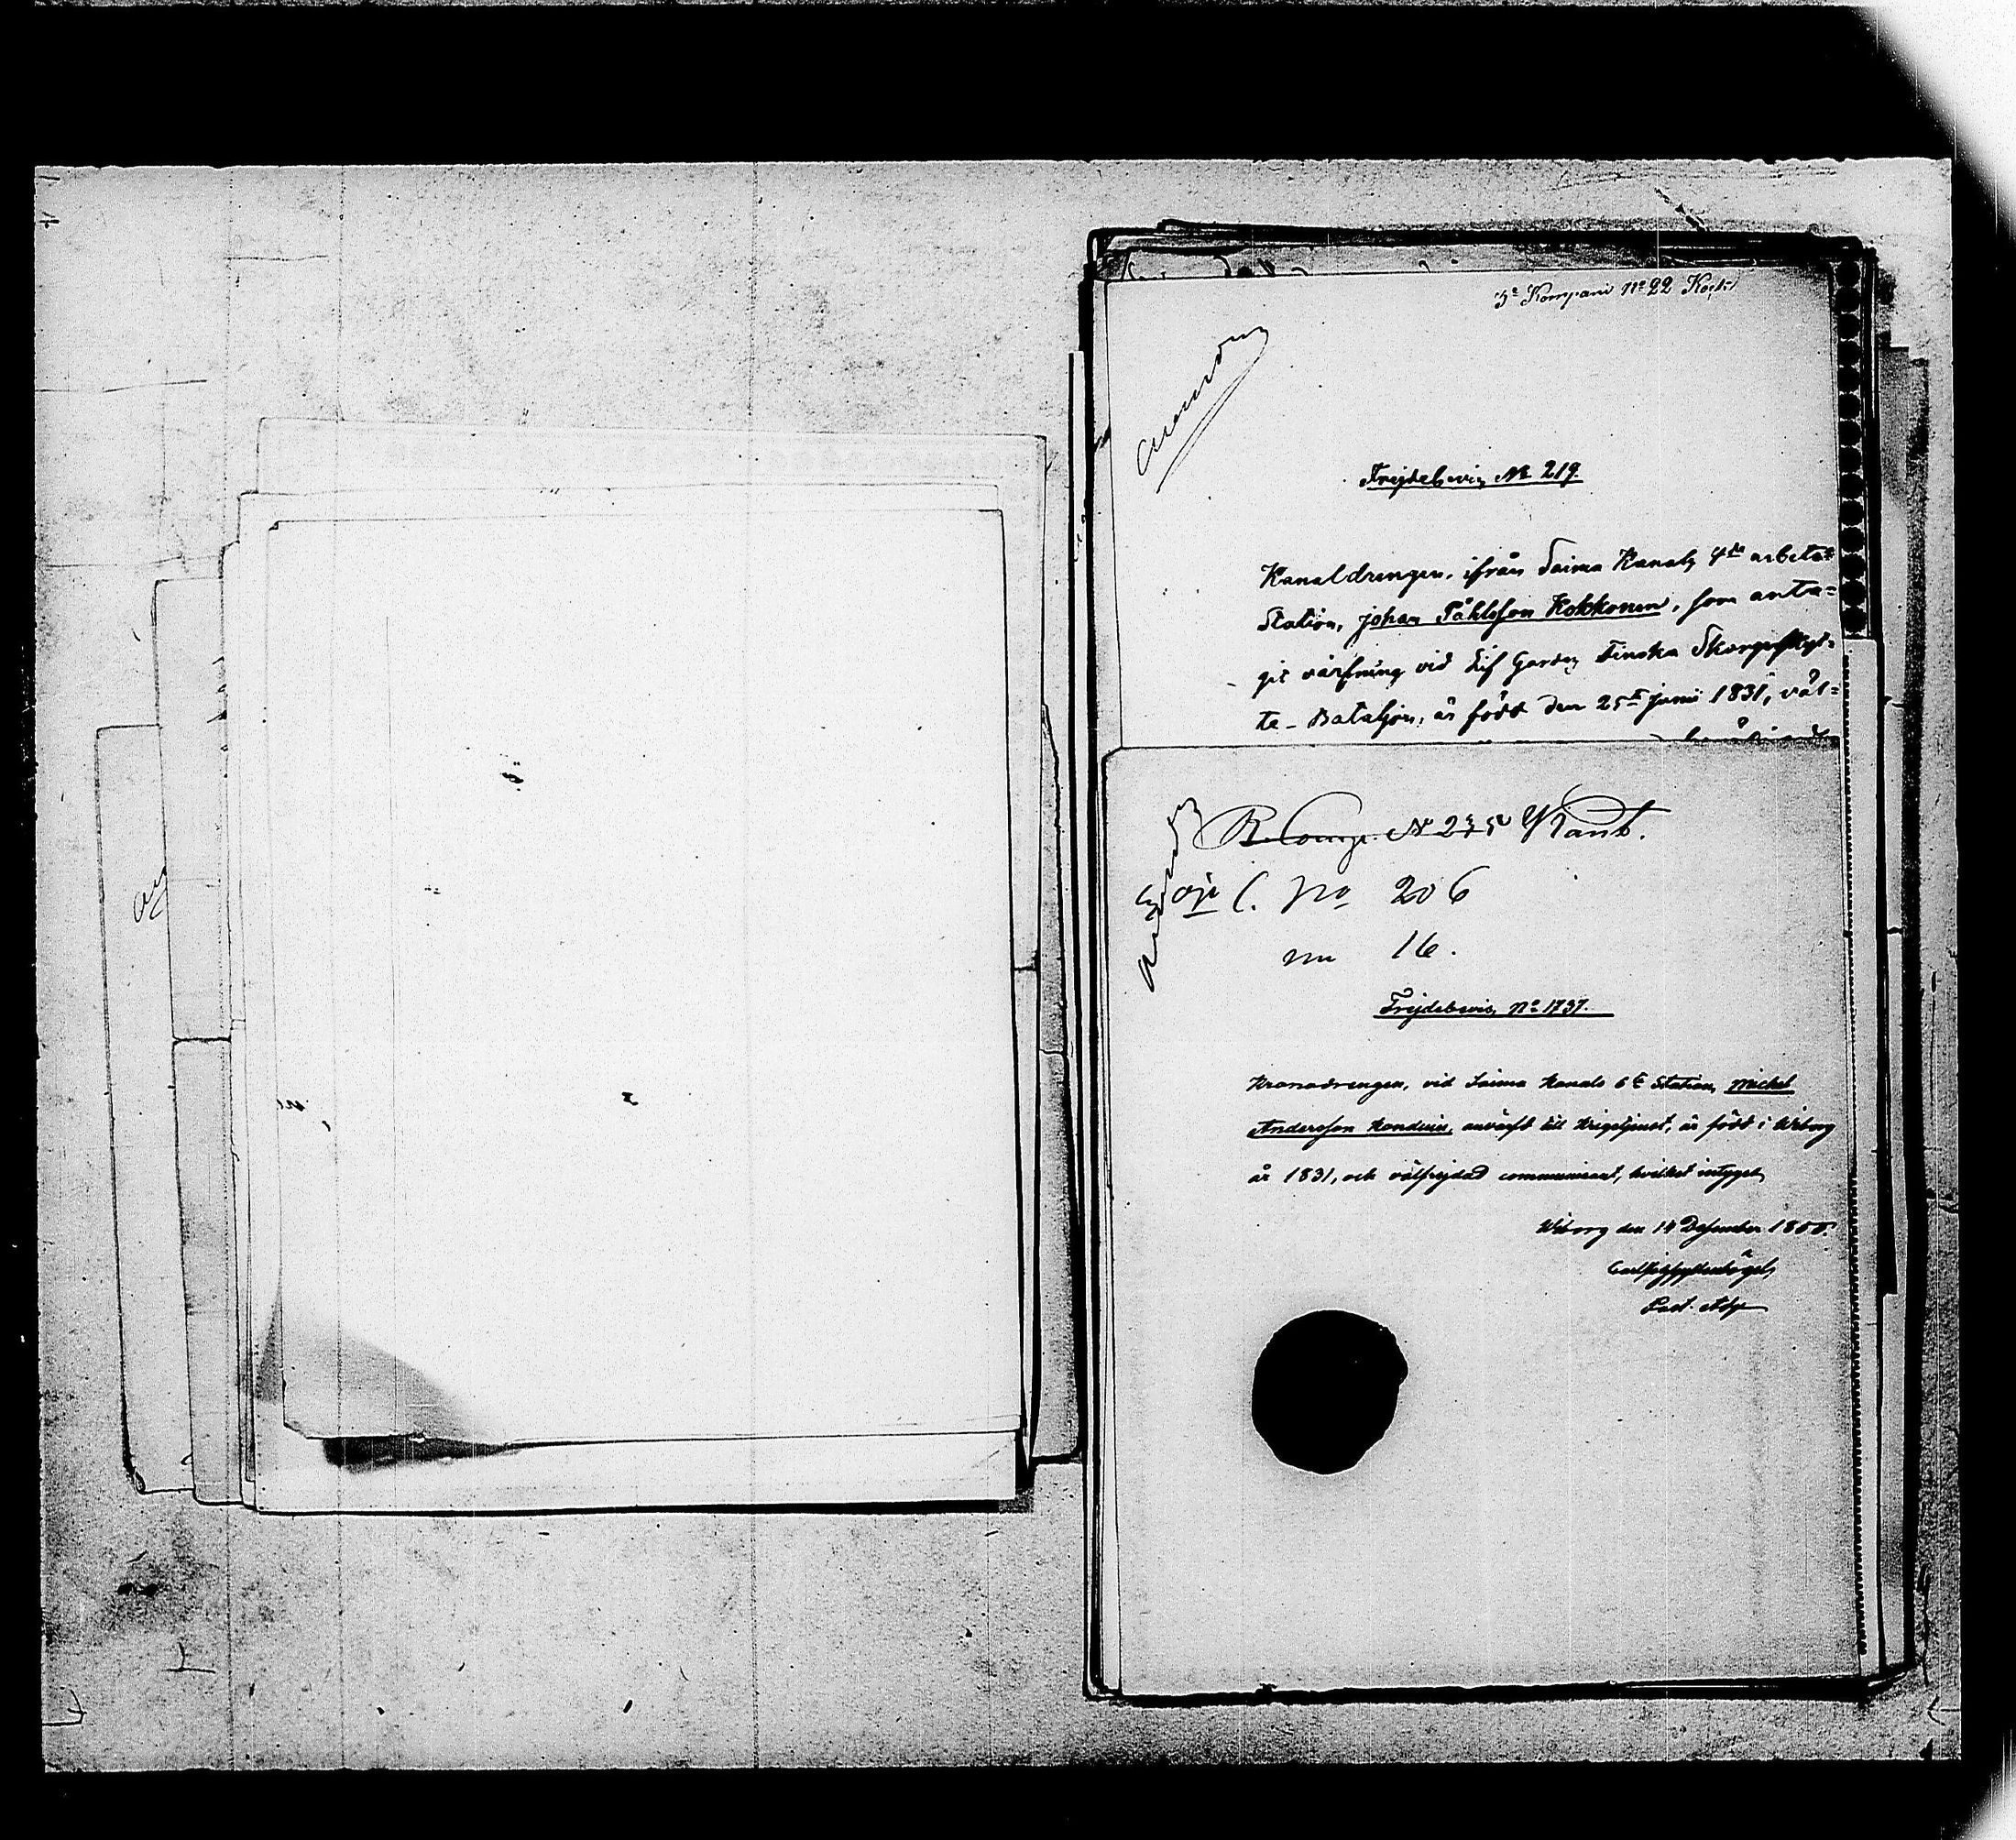 3e Kompani No 22 Kock
Frejdebevis No 219.
Kanaldrengen, ifrån Saima Kanals 4de arbets=
Station, Johan Påhlsson Kokkonen, som anta=
git värfning vid Lif Gardes Finska Skarpskyt=
te-Bataljon, är född den 25te Junii 1831, väl=
R. Comp. No 235
C. No 206
nu 16.
Frejdebevis No 1737.
Kronodrengen, vid Saima Kanals 6te Station, Michel
Andersson, anvärfd till Krigstjenst, är född i Wiborg
år 1831, och välfrejdad communicant, hvilket intygas
Wiborg den 14 December
Past. Adj.